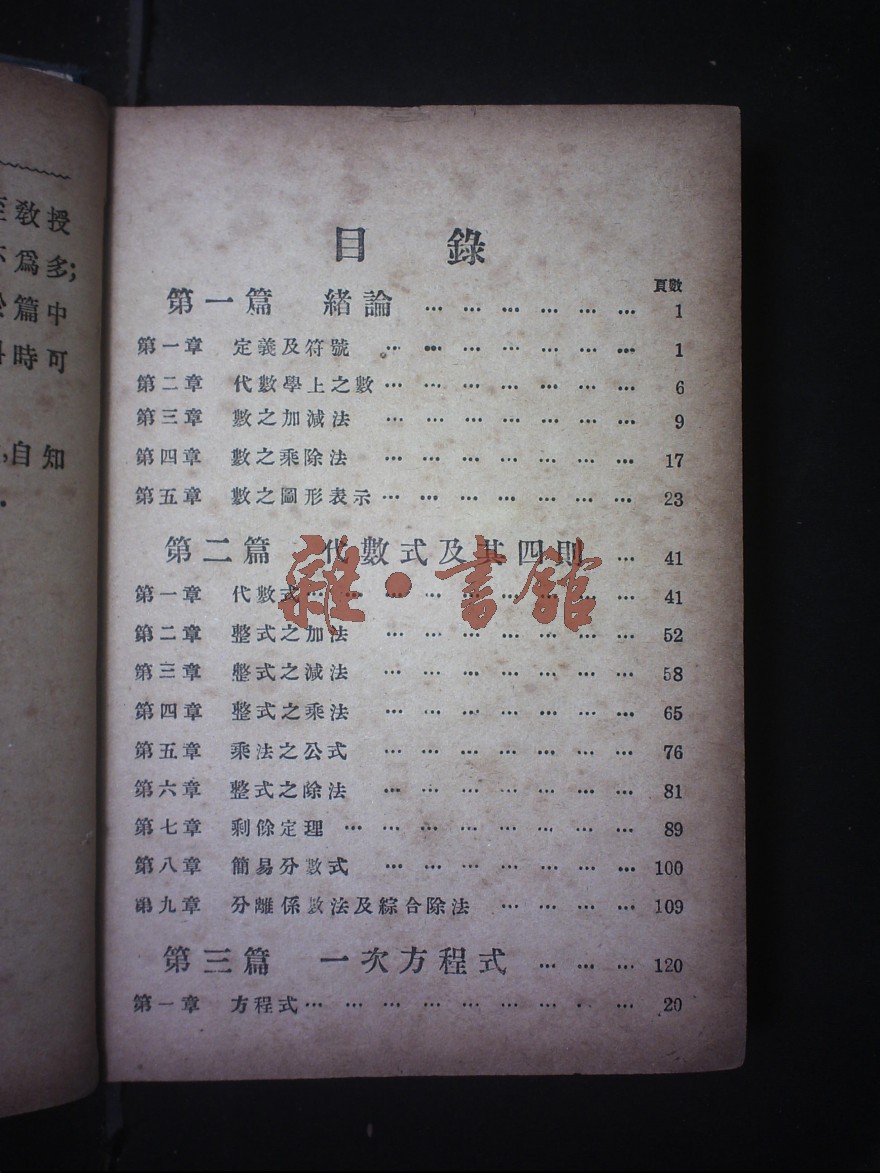 目 錄
頁數
第一篇 緒論 … … … … … … 1
第一章 定義及符號 … … … … … … … 1
第二章 代數學上之數 … … … … … … … 6
第三章 數之加減法 … … … … … … … 9
第四章 數之乘除法 … … … … … … … 17
第五章 數之圖形表示 … … … … … … … 23
第二篇 代數式及其四則 … 41
第一章 代數式 … … … … … … … … … 41
第二章 整式之加法 … … … … … … … 52
第三章 整式之減法 … … … … … … … 58
第四章 整式之乘法 … … … … … … … 65
第五章 乘法之公式 … … … … … … … 76
第六章 整式之除法 … … … … … … … 81
第七章 剩餘定理 … … … … … … … … 89
第八章 簡易分數式 … … … … … … … 100
第九章 分離係數法及綜合除法 … … … … 109
第三篇 一次方程式 … … … 120
第一章 方程式 … … … … … … … … … 20
雜·書館
教授
爲多;
篇中
時可
,自知